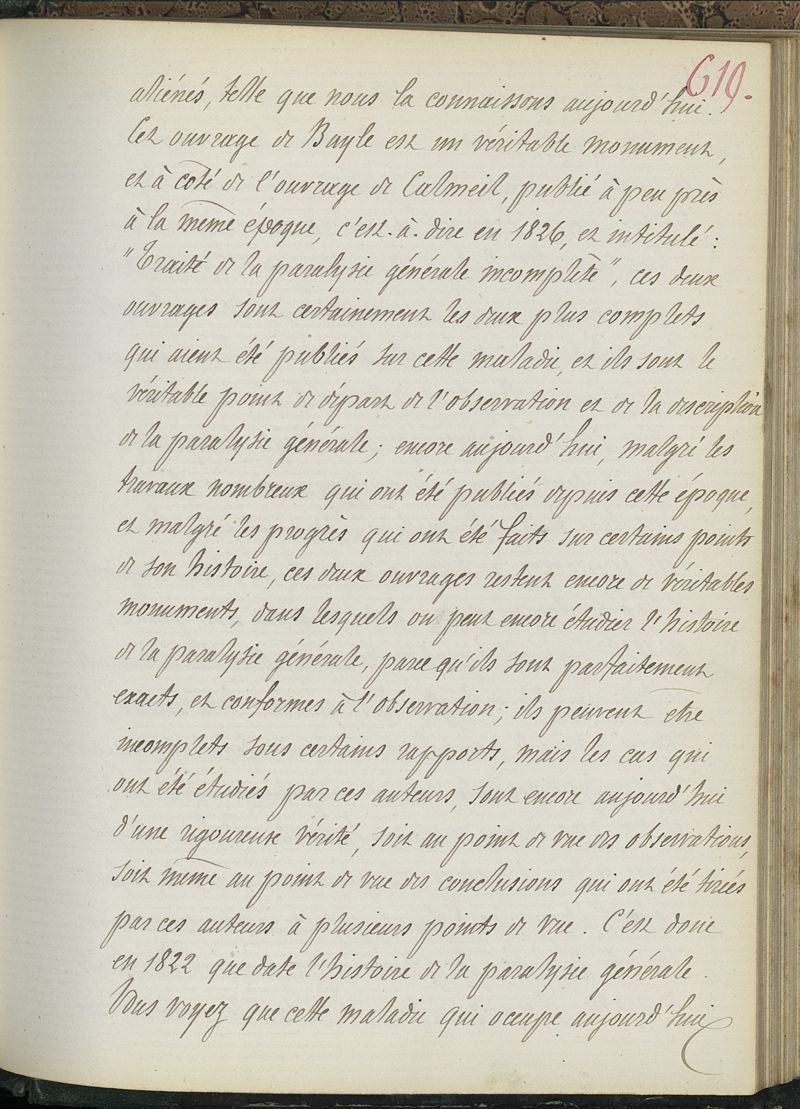 619.
aliénés, telle que nous la connaissons aujourd'hui.
Cet ouvrage de Bayle est un véritable monument,
et à coté de l'ouvrage de Calmeil, publié à peu près
à la même époque, c'est-à-dire en 1826, et intitulé :
"Traité de la paralysie générale incomplète", ces deux
ouvrages sont certainement les deux plus complets
qui aient été publiés sur cette maladie, et ils sont le
véritable point de départ de l'observation et de la description
de la paralysie générale ; encore aujourd'hui, malgré les
travaux nombreux qui ont été publiés depuis cette époque,
et malgré les progrès qui ont été faits sur certains points
de son histoire, ces deux ouvrages restent encore de véritables
monuments, dans lesquels on peut encore étudier l'histoire
de la paralysie générale, parce qu'ils sont parfaitement
exacts, et conformes à l'observation ; ils peuvent être
incomplets sous certains rapports, mais les cas qui
ont été étudiés par ces auteurs, sont encore aujourd'hui
d'une rigoureuse vérité, soit au point de vue des observations,
soit même au point de vue des conclusions qui ont été tirées
par ces auteurs à plusieurs points de vue. C'est donc
en 1822 que date l'histoire de la paralysie générale.
Vous voyez que cette maladie qui occupe aujourd'hui